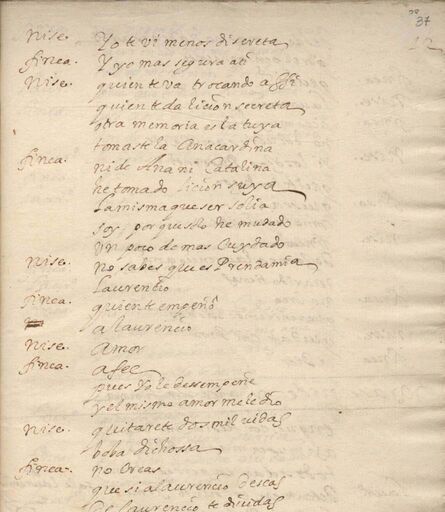 37
nise. yo te vi menos discreta
finea. y yo mas segura a ti
nise. quien te va trocando assi
quien te da liçion secreta
otra memoria es la tuya
tomaste la Anacardina
finea. ni de Ana ni Catalina
he tomado liçion suya
la misma que ser solia
soy, porque solo he mudado
un poco de mas Cuydado
nise. no sabes que es Prenda mia
laurençio
finea. quien te empeño
a laurençio
nise. Amor
finea. a fee
pues yo le desempeñe
y el mismo amor me le dio
nise. quitarete dos mil vidas
boba dichossa
finea. no Creas
que si a laurençio deseas
de laurençio te dividas